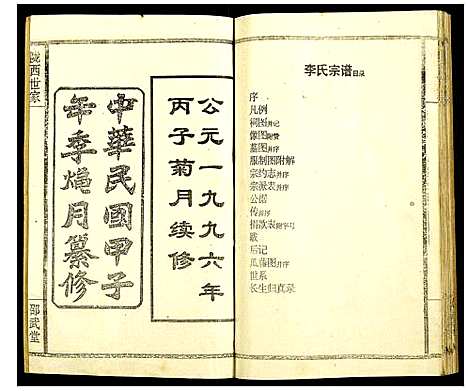 李氏宗谱目录
序
凡例
祠图并记
像图附赞
墓图并序
服制图附解
宗约志并序
宗派表并序
公儲
传并序
捐款表附字号
跋
后记
瓜藤图并序
世系
长生归真录
公元一九九六年
丙子菊月续修
中華民國甲子
年季灺月纂修
陇西世家
邵武堂